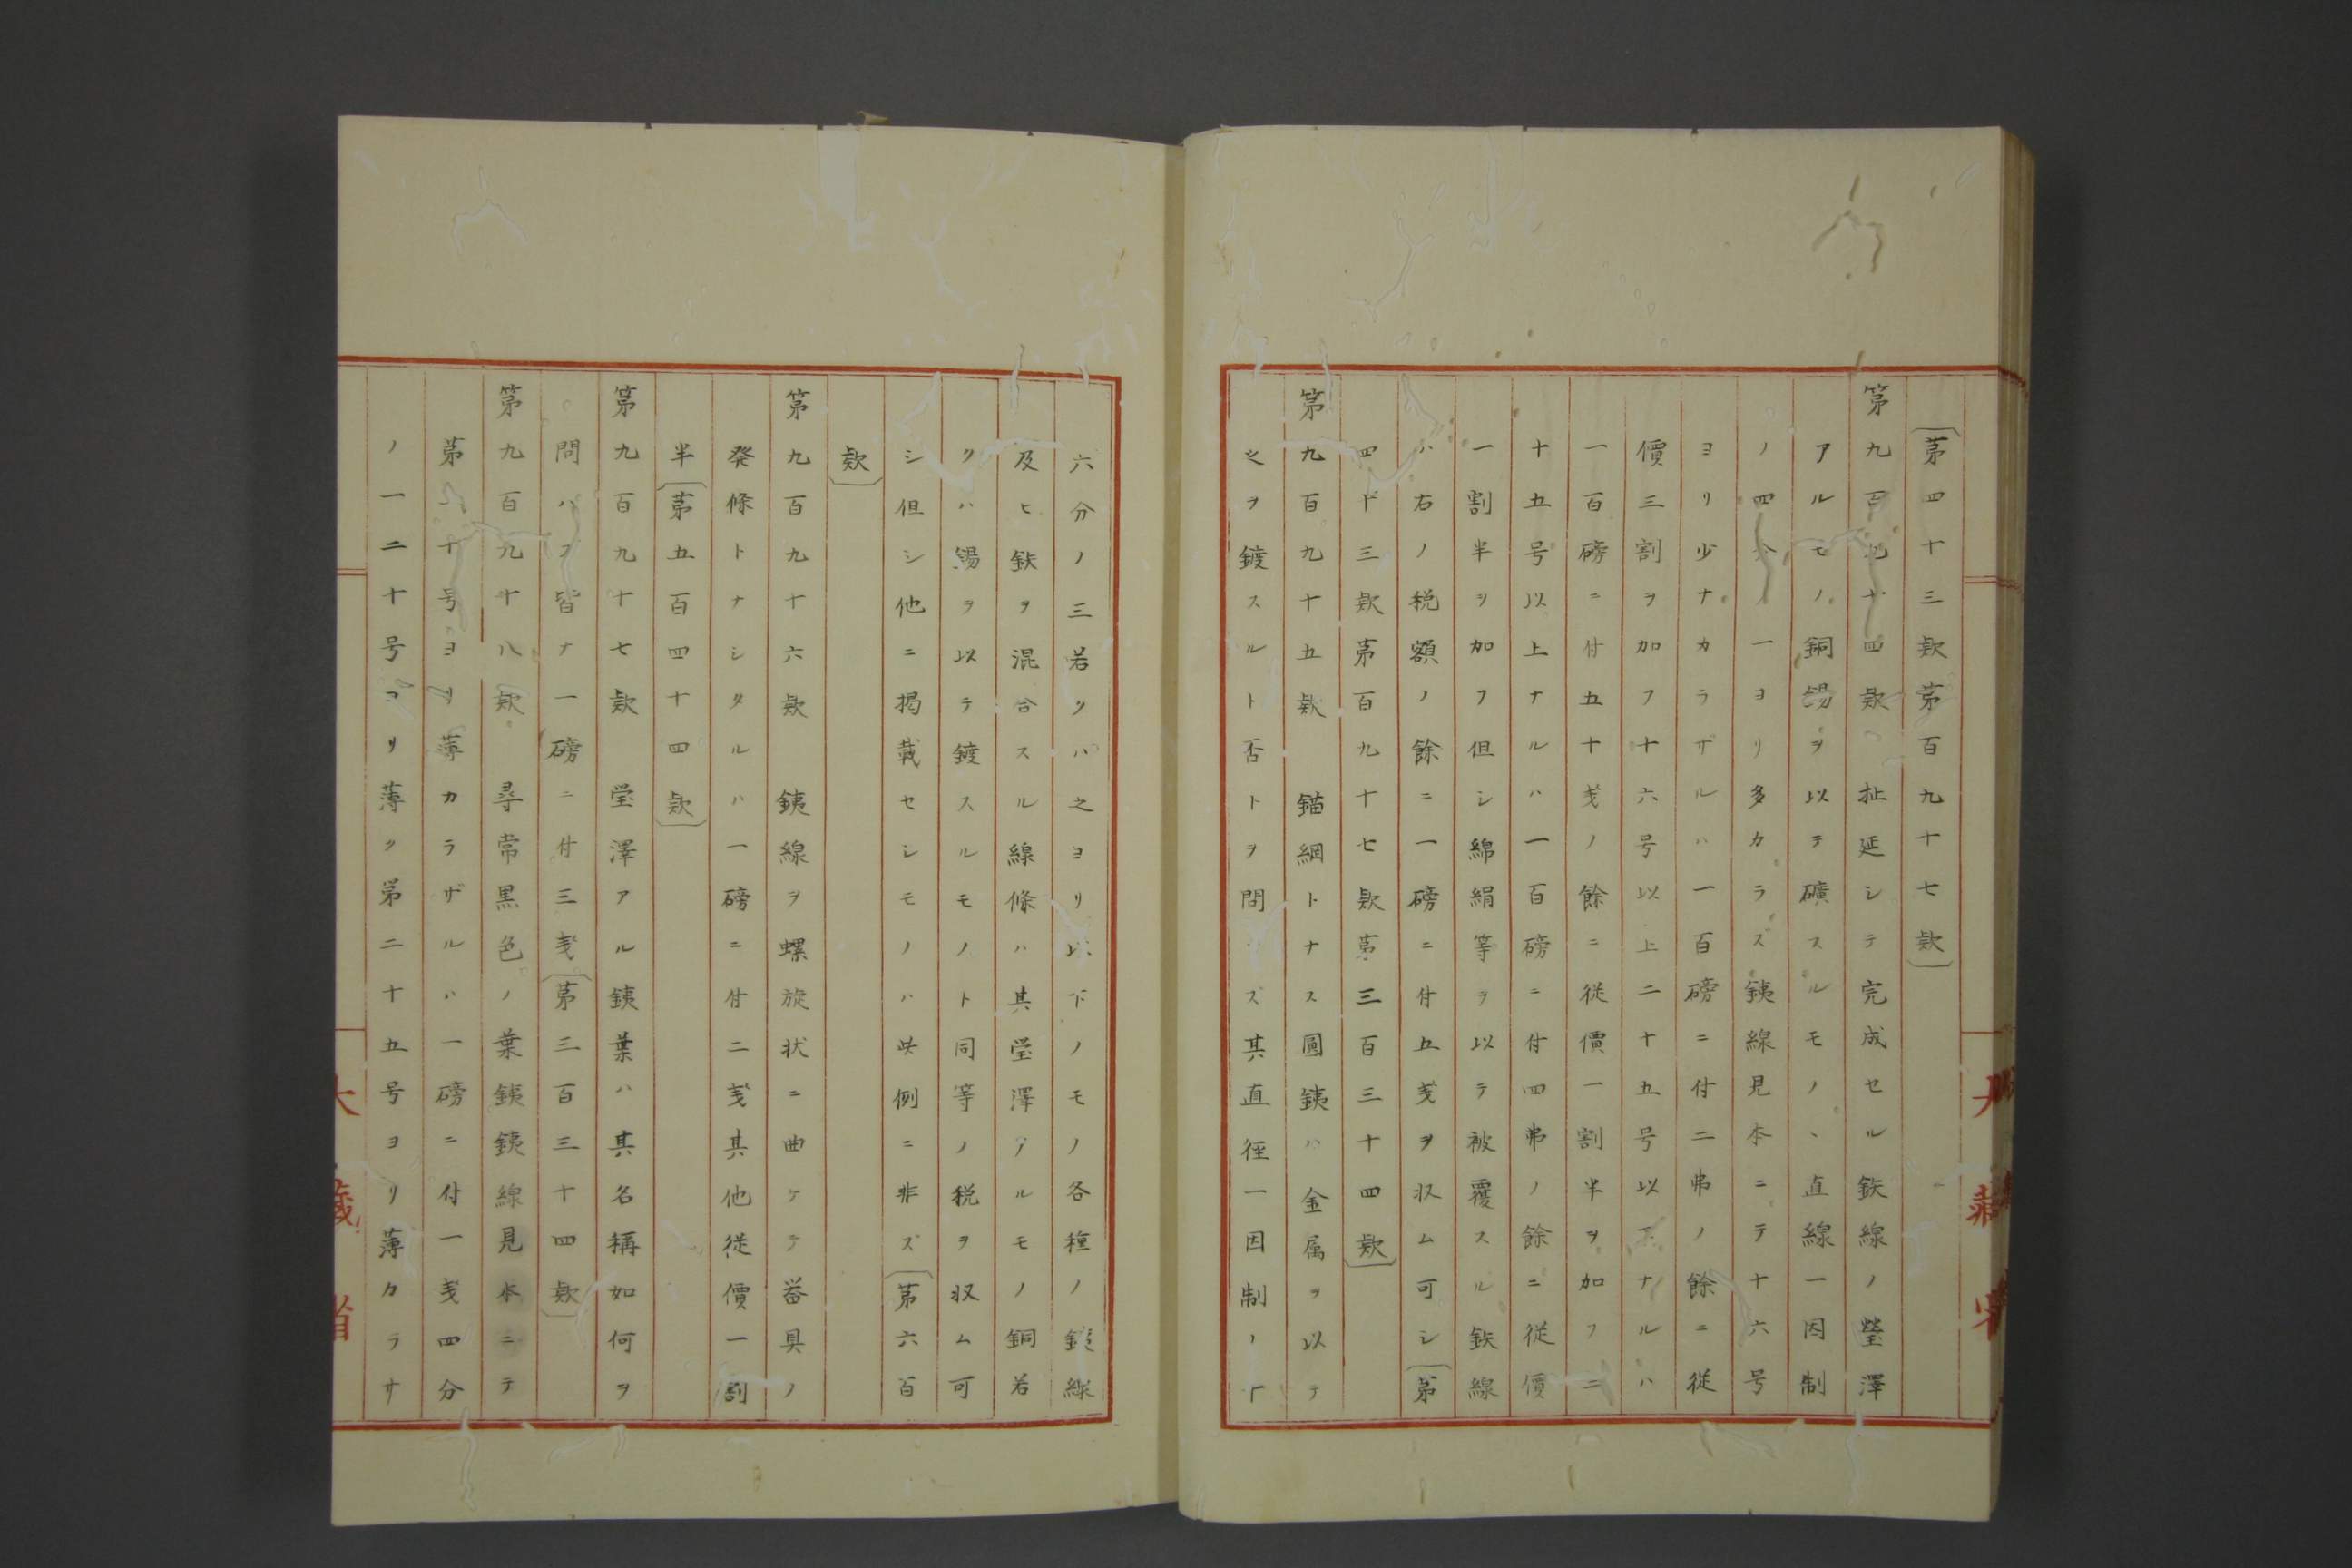 〔第四十三欵第百九十七欵〕
第九百九十四欵　扯延シテ完成セル鉄線ノ瑩澤
アルモノ銅錫ヲ以テ礦スルモノ、直線一因制
ノ四分ノ一ヨリ多カラズ銕線見本ニテ十六号
ヨリ少ナカラザルハ一百磅ニ付二弗ノ餘ニ従
價三割ヲ加フ十六号以上二十五号以下ナルハ
一百磅ニ付五十戔ノ餘ニ従價一割半ヲ加フ二
十五号以上ナルハ一百磅ニ付四弗ノ餘ニ従價
一割半ヲ加フ但シ綿絹等ヲ以テ被覆スル鉄線
ハ右ノ税額ノ餘ニ一磅ニ付五戔ヲ収ム可シ〔第
四十三欵第百九十七欵第三百三十四欵〕
第九百九十五欵　錨綱トナス圓銕ハ金属ヲ以テ
之ヲ鍍スルト否トヲ問ハズ其直径一因制ノ十
六分ノ三若クハ之ヨリ以下ノモノ各種ノ銕線
及ヒ鉄ヲ混合スル線條ハ其瑩澤アルモノ銅若
クハ錫ヲ以テ鍍スルモノト同等ノ税ヲ収ム可
シ但シ他ニ掲載セシモノハ此例ニ非ズ〔第六百
欵〕
第九百九十六欵　銕線ヲ螺旋状ニ曲ケテ器具ノ
發條トナシタルハ一磅ニ付二戔其他従價一割
半〔第五百四十四欵〕
第九百九十七欵　瑩澤アル銕葉ハ其名稱如何ヲ
問ハズ皆ナ一磅ニ付三戔〔第三百三十四欵〕
第九百九十八欵　尋常黒色ノ葉銕銕線見本ニテ
第二十号ヨリ薄カラザルハ一磅ニ付一戔四分
ノ一二十号ヨリ薄ク第二十五号ヨリ薄カラサ
大藏省